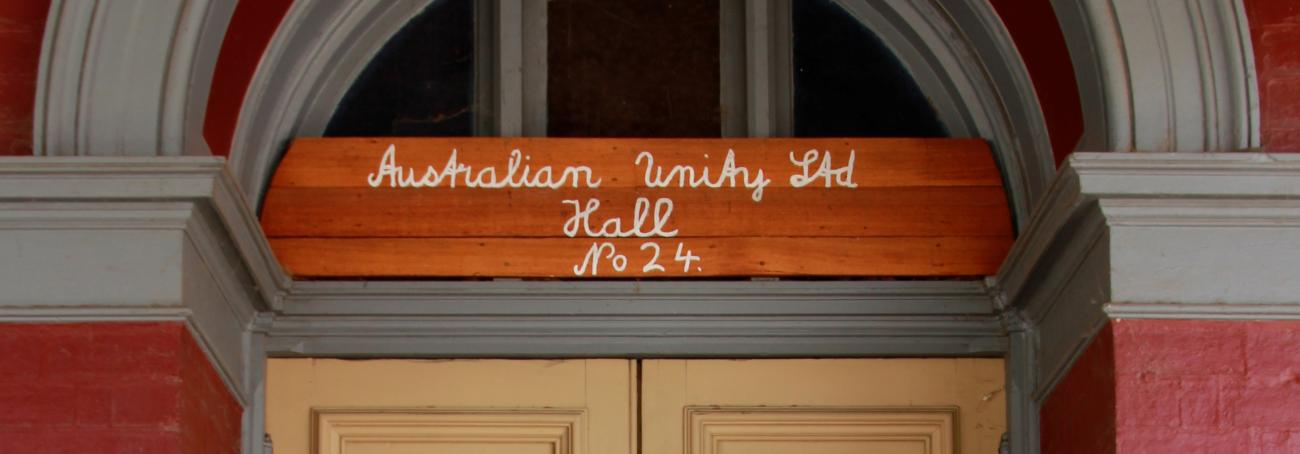 Australian Unity Ltd
Hall
No 24.